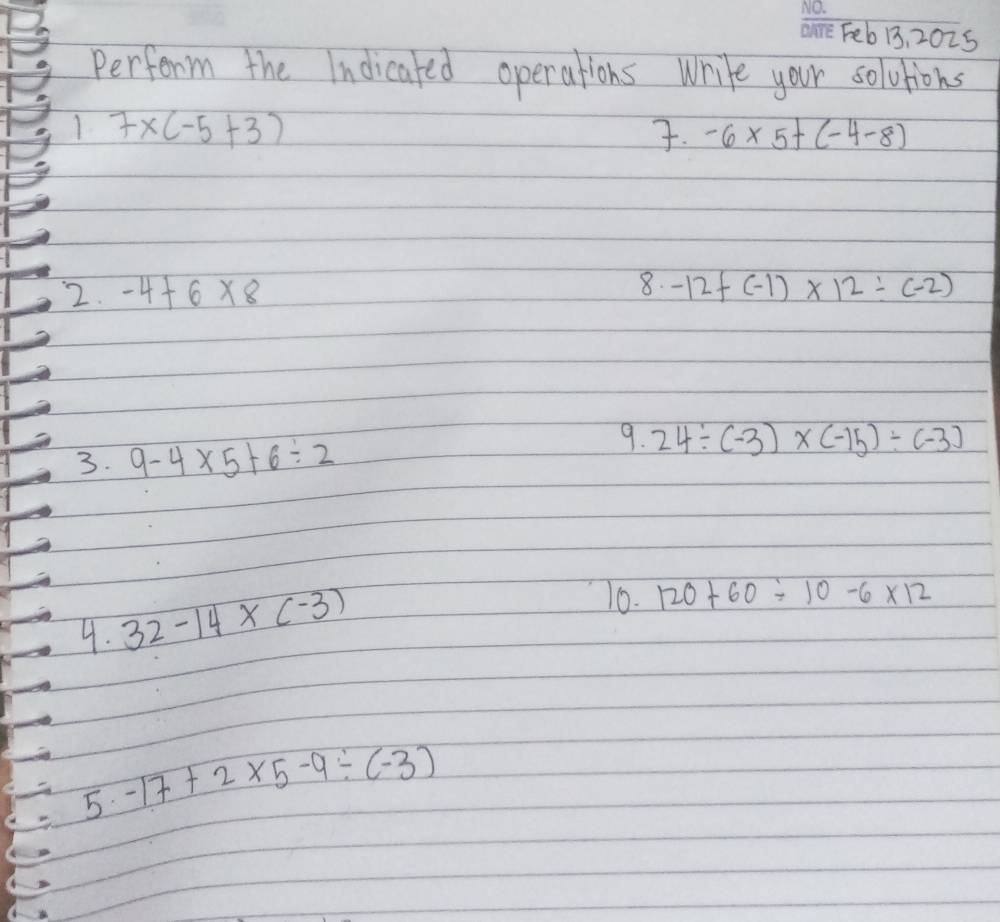 NO.
DATE Feb 13, 2025
Perform the Indicated operations Write your solutions
1. 7×(-5+3)
7. -6 × 5+(-4-8)
2. -4+6×8
8. -12+(-1) × 12 ÷ (-2)
3. 9-4×5+6÷2
9. 24÷(-3) ×(-15) ÷ (-3)
4. 32-14 × (-3)
10. 120+60 ÷ 10 -6×12
5. -17+2×5-9÷(-3)